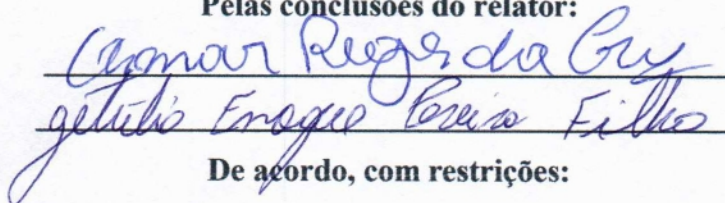 Pelas conclusões do relator:
da Cruz
getulio Enoque Pereira Filho
De acordo, com restrições: